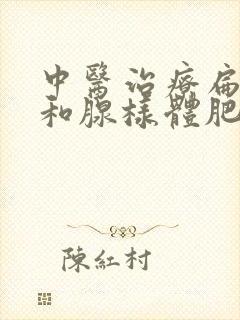 中醫治療扁
和腺樣體肥
陳紅村